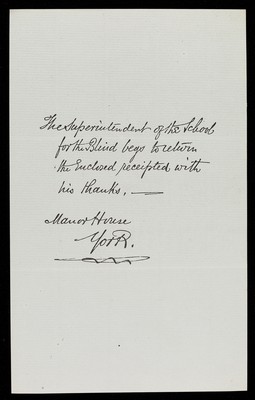 The Superintendent of the School
for the Blind begs to return
the Enclosed receipted with
his thanks. —
Manor House
York.